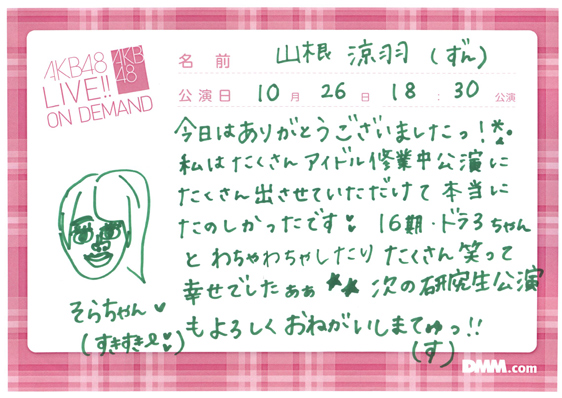 AKB48
LIVE!!
ON DEMAND
AKB
48
名前 山根 涼羽 (ずん)
公演日 10月26日 18:30公演
今日はありがとうございましたっ!
私はたくさんアイドル修業中公演に
たくさん出させていただけて本当に
たのしかったです♥ 16期・ドラ3ちゃん
とわちゃわちゃしたりたくさん笑って
幸せでしたぁぁ ★★ 次の研究生公演
もよろしくおねがいしまてゅっ!!
(す)
そらちゃん♥
(すきすき♥)
DMM.com